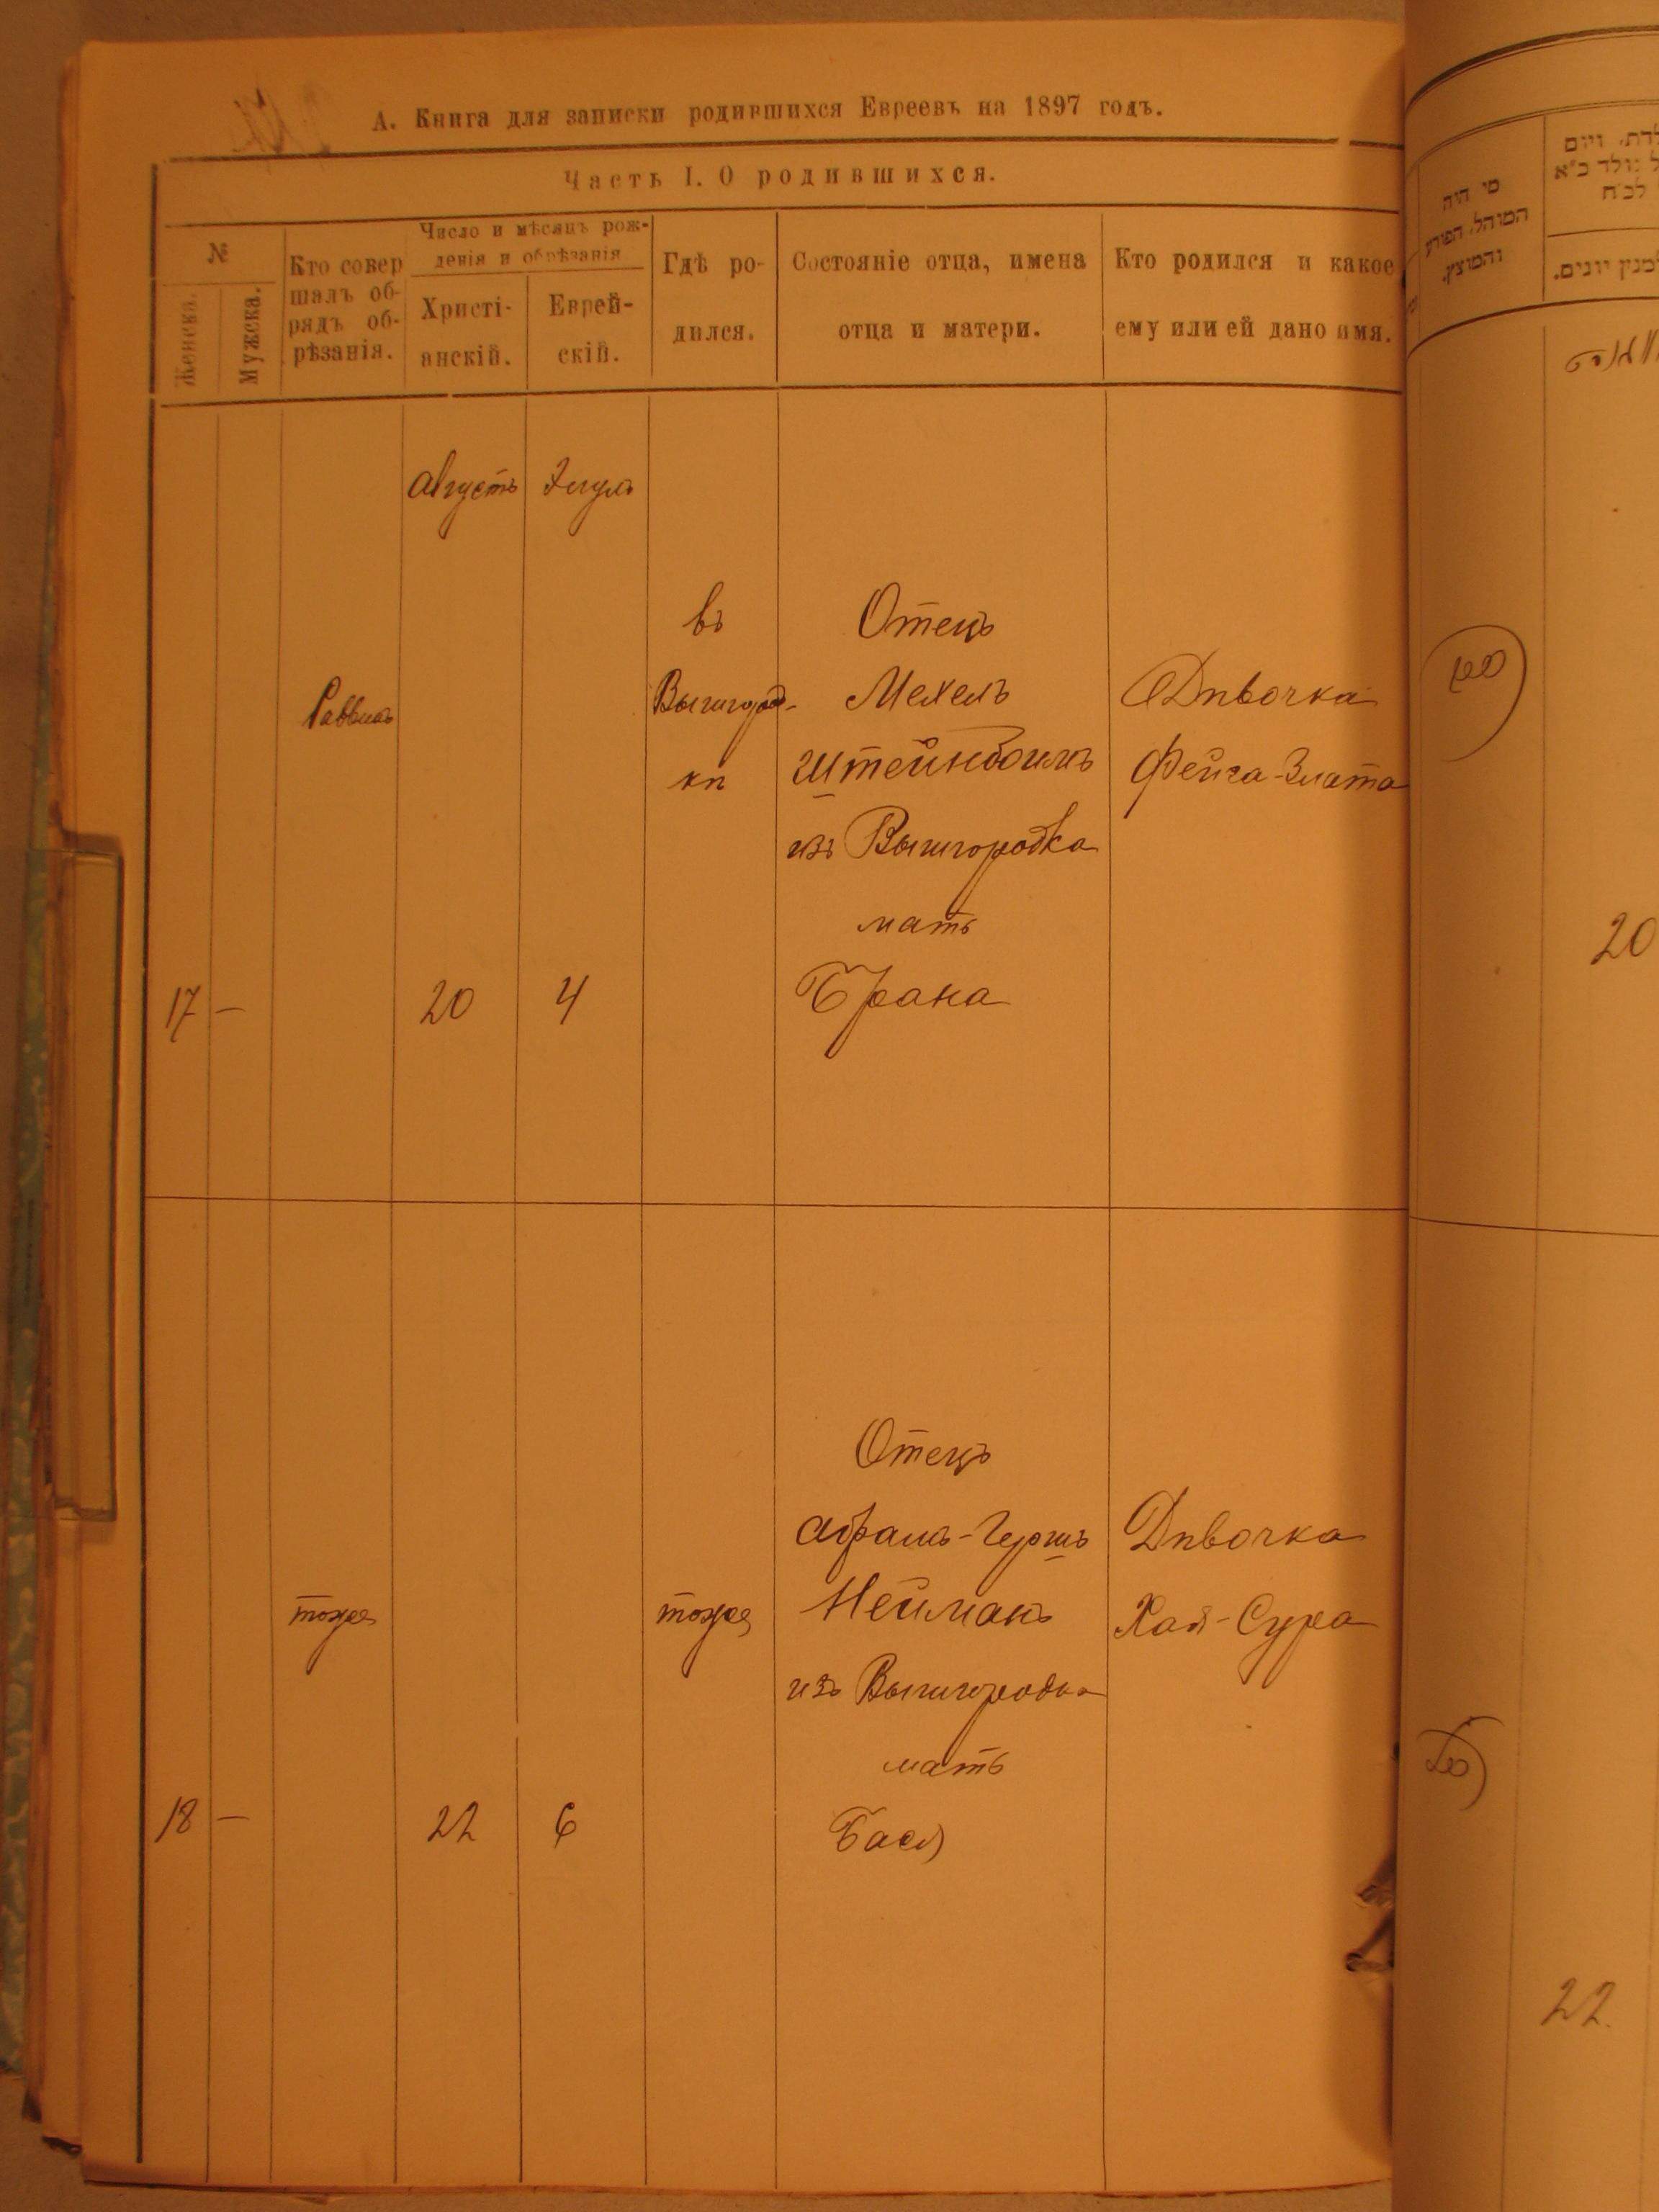 А. Книга для записки родившихся Евреевъ на 1897 годъ.
Часть I. О родившихся.
№
Женска.
Мужска.
Кто совер
шалъ об-
рядъ об-
рѣзанія.
Число и мѣсяцъ рож-
денія и обрѣзанія.
Христі-
анскій.
Еврей-
скій.
Гдѣ ро-
дился.
Состояніе отца, имена
отца и матери.
Кто родился и какое
ему или ей дано имя.
Августъ
Элулъ
17 —
Раввинъ
20
4
въ
Вышгород-
кѣ
Отецъ
Мехель
Штейнбоимъ
изъ Вышгородка
мать
Брана
Дѣвочка
Фейга-Злата
18 —
тоже
22
6
тоже
Отецъ
Абрамъ-Гершъ
Нейманъ
изъ Вышгородка
мать
Бася
Дѣвочка
Хая-Сура
מי היה
המוהל, הפורע
והמוצץ.
20
22.